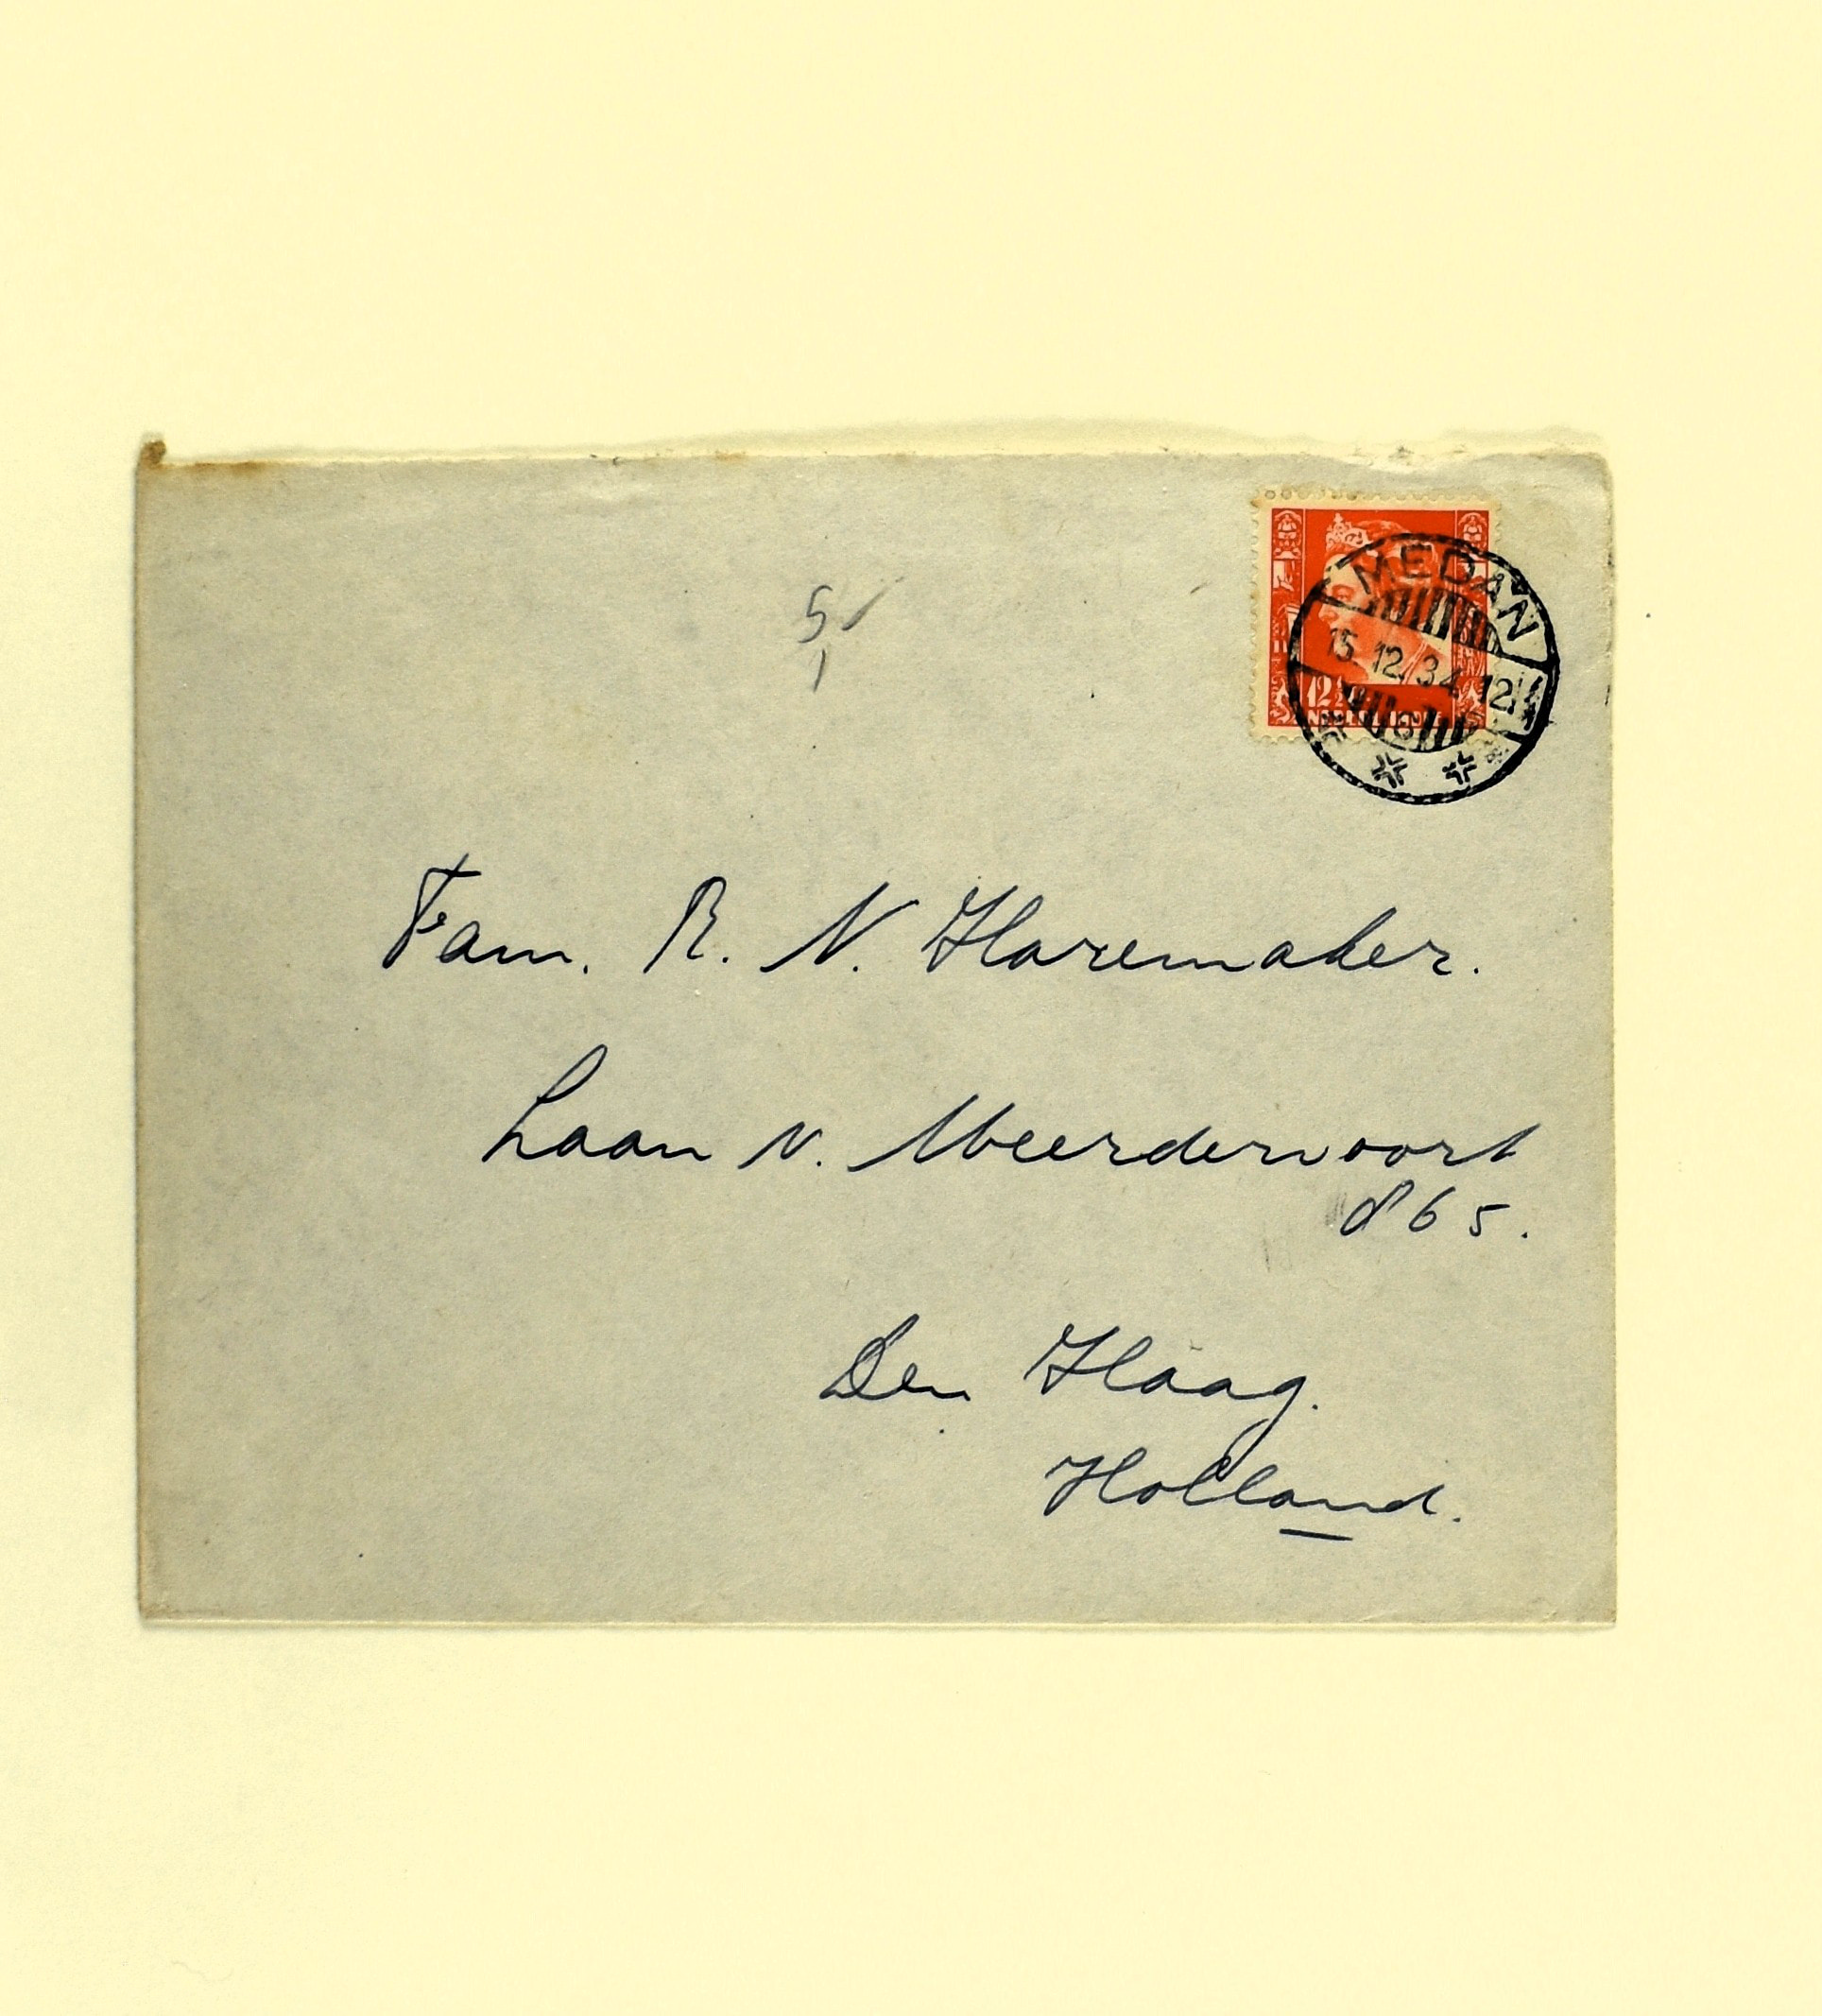 5
MEDAN
15.12.34.12
12½
NED. INDIE
Fam. R. N. Haremaker.
Laan v. Meerdervoort
865.
Den Haag.
Holland.